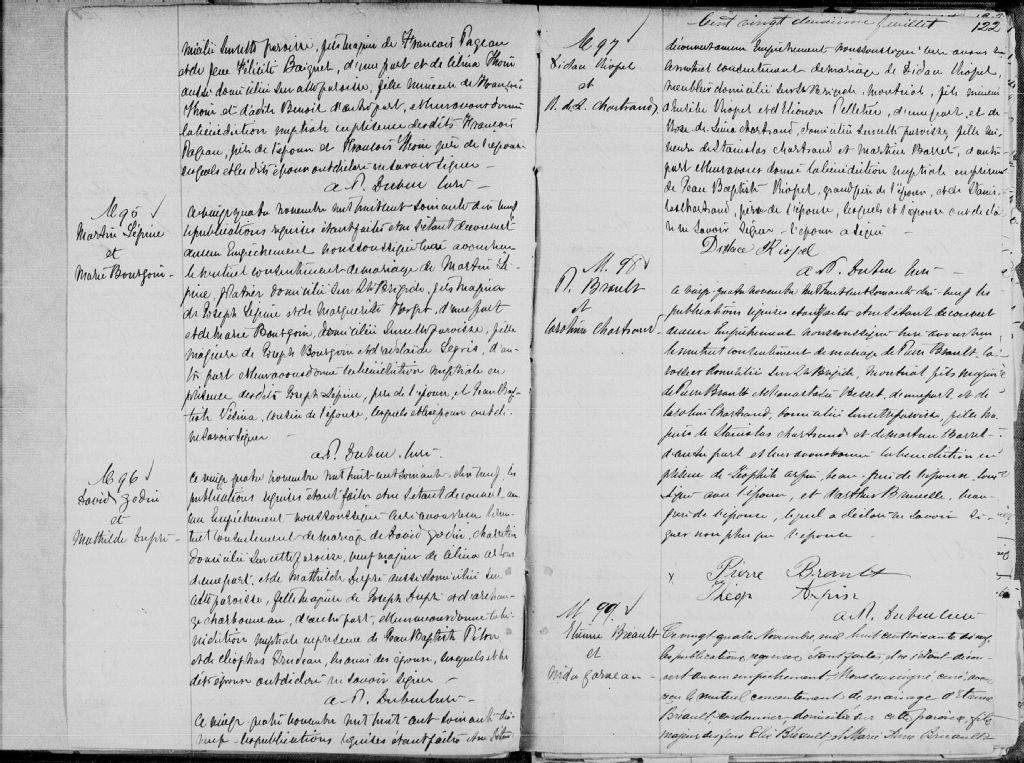 domicilié sur cette paroisse, fils majeur de François Pageau
et de feue Félicité Paiquet, d'une part et de
aussi domiciliée sur cette paroisse, fille mineure de François
et d'Edith Benoit d'autre part, et leur avons donné
la bénédiction nuptiale en présence desdits François
Pageau, père de l'époux et François père de l'épouse
lesquels et les dits époux ont déclaré ne savoir signer -
A. P. Dubuc Curé -
M 95
Martin Lépine
et
Marie Bourgoin -
Ce vingt quatre novembre mil huit cent soixante dix neuf
les publications requises étant faites et ne s'étant découvert
aucun Empêchement nous soussigné curé avons reçu
le mutuel consentement de mariage de Martin Lé-
pine, domicilié sur Ste Brigide, fils majeur
de Joseph Lépine et de Marguerite d'une part
et de Marie Bourgoin, domiciliée sur cette paroisse, fille
majeure de Joseph Bourgoin et d'Adelaide Legris, d'au-
tre part et leur avons donné la bénédiction nuptiale en
présence desdits Joseph Lépine, père de l'époux et Jean Bap-
tiste Vésina, cousin de l'épouse, lesquels et les époux ont dé-
ne savoir signer
A. P. Dubuc Curé -
M 96
David Godin
et
Mathilde Dupré -
Ce vingt quatre novembre mil huit cent soixante dix neuf, les
publications requises étant faites et ne s'étant découvert au-
cun Empêchement nous soussigné curé avons reçu le mu-
tuel consentement de mariage de David Godin, charretier
domicilié sur cette paroisse, veuf majeur de
d'une part, et de Mathilde Dupré aussi domiciliée sur
cette paroisse, fille majeure de Joseph Dupré et d'Archan-
ge Charbonneau, d'autre part, et leur avons donné la bé-
nédiction nuptiale en présence de Jean Baptiste Piton
et de Cléophas Trudeau, les amis des époux, lesquels et les
dits époux ont déclaré ne savoir signer
A. P. Dubuc Curé -
Ce vingt quatre novembre mil huit cent soixante dix-
neuf les publications requises étant faites et ne s'étant
Cent vingt deuxième feuillet
122
M 97
Didace Riopel
et
R. de L. Chartrand
découvert aucun Empêchement nous soussigné curé avons reçu
le mutuel consentement de mariage de Didace Riopel,
meublier domicilié sur Ste Brigide, Montréal, fils mineur
Riopel et d'Eléonore Pelletier, d'une part, et de
Rose de Lima Chartrand, domiciliée sur cette paroisse, fille mi-
neure de Stanislas Chartrand et Martine Barret, d'autre
part et leur avons donné la bénédiction nuptiale en présence
de Jean Baptiste Riopel, grand père de l'époux, et de Stanis-
las Chartrand, père de l'épouse, lesquels et l'épouse ont décla-
ré ne savoir signer - l'époux a signé
Didace Riopel
A. P. Dubuc Curé -
M. 98
P. Brault
et
Caroline Chartrand -
Ce vingt quatre novembre mil huit cent soixante dix-neuf les
publications requises étant faites et ne s'étant découvert
aucun Empêchement nous soussigné curé avons reçu
le mutuel consentement de mariage de Pierre Brault,
domicilié sur Ste Brigide, Montréal fils majeur
de Pierre Brault et d'Anastasie Bessett, d'une part et de
Caroline Chartrand, domiciliée sur cette paroisse, fille ma-
jeure de Stanislas Chartrand et de Martine Barret -
d'autre part et leur avons donné la bénédiction en
présence de Théophile Arpin, beau-frère de l'épouse sous-
signé avec l'époux, et d'Arthur Brunelle, beau-
frère de l'épouse, lequel a déclaré ne savoir si-
gner non plus que l'épouse
x Pierre Brault
Théop Arpin
A. P. Dubuc Curé
M 99.
Etienne Breault
et
Garneau -
Ce vingt quatre Novembre mil huit cent soixante dix neuf
les publications requises étant faites, et ne s'étant décou-
vert aucun empêchement Nous soussigné curé, avons
reçu le mutuel consentement de mariage d'Etienne
Breault cordonnier domicilié sur cette paroisse, fils
majeur des feus Elie Breault, et Marie Anne Breault